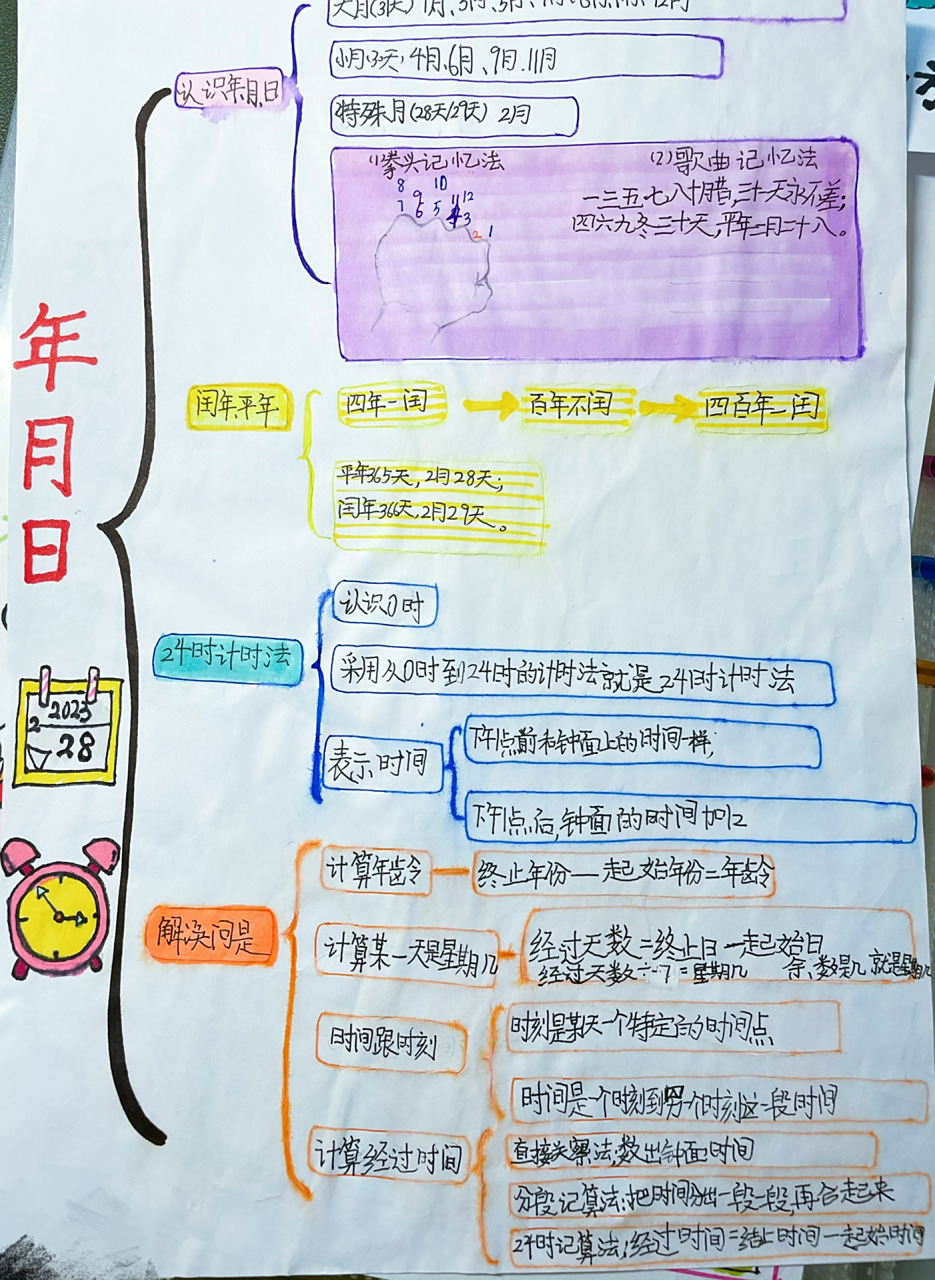 认识年、月、日
小月(30天)4月、6月、9月、11月
特殊月(28天/29天) 2月
(1)拳头记忆法
8 9 10 11 12
7 6 5 4 3 2 1
(2)歌曲记忆法
一三五七八十腊,三十天永不差;
四六九冬三十天,平年二月二十八。
年月日
闰年、平年
四年一闰
百年不闰
四百年一闰
平年365天,2月28天;
闰年366天,2月29天。
24时计时法
认识0时
采用从0时到24时的计时法就是24时计时法
表示时间
下午1点前和钟面上的时间一样;
下午1点后,钟面的时间加12
2023
2
28
解决问是
计算年龄
终止年份—起始年份=年龄
计算某一天是星期几
经过天数=终止日—起始日
经过天数÷7=星期几 余数是几就是星期几
时间跟时刻
时刻是某天一个特定的时间点
时间是一个时刻到另一个时刻这一段时间
计算经过时间
直接关察法:数出钟面时间
分段记算法:把时间分出一段一段,再合起来
24时记算法:经过时间=结止时间—起始时间